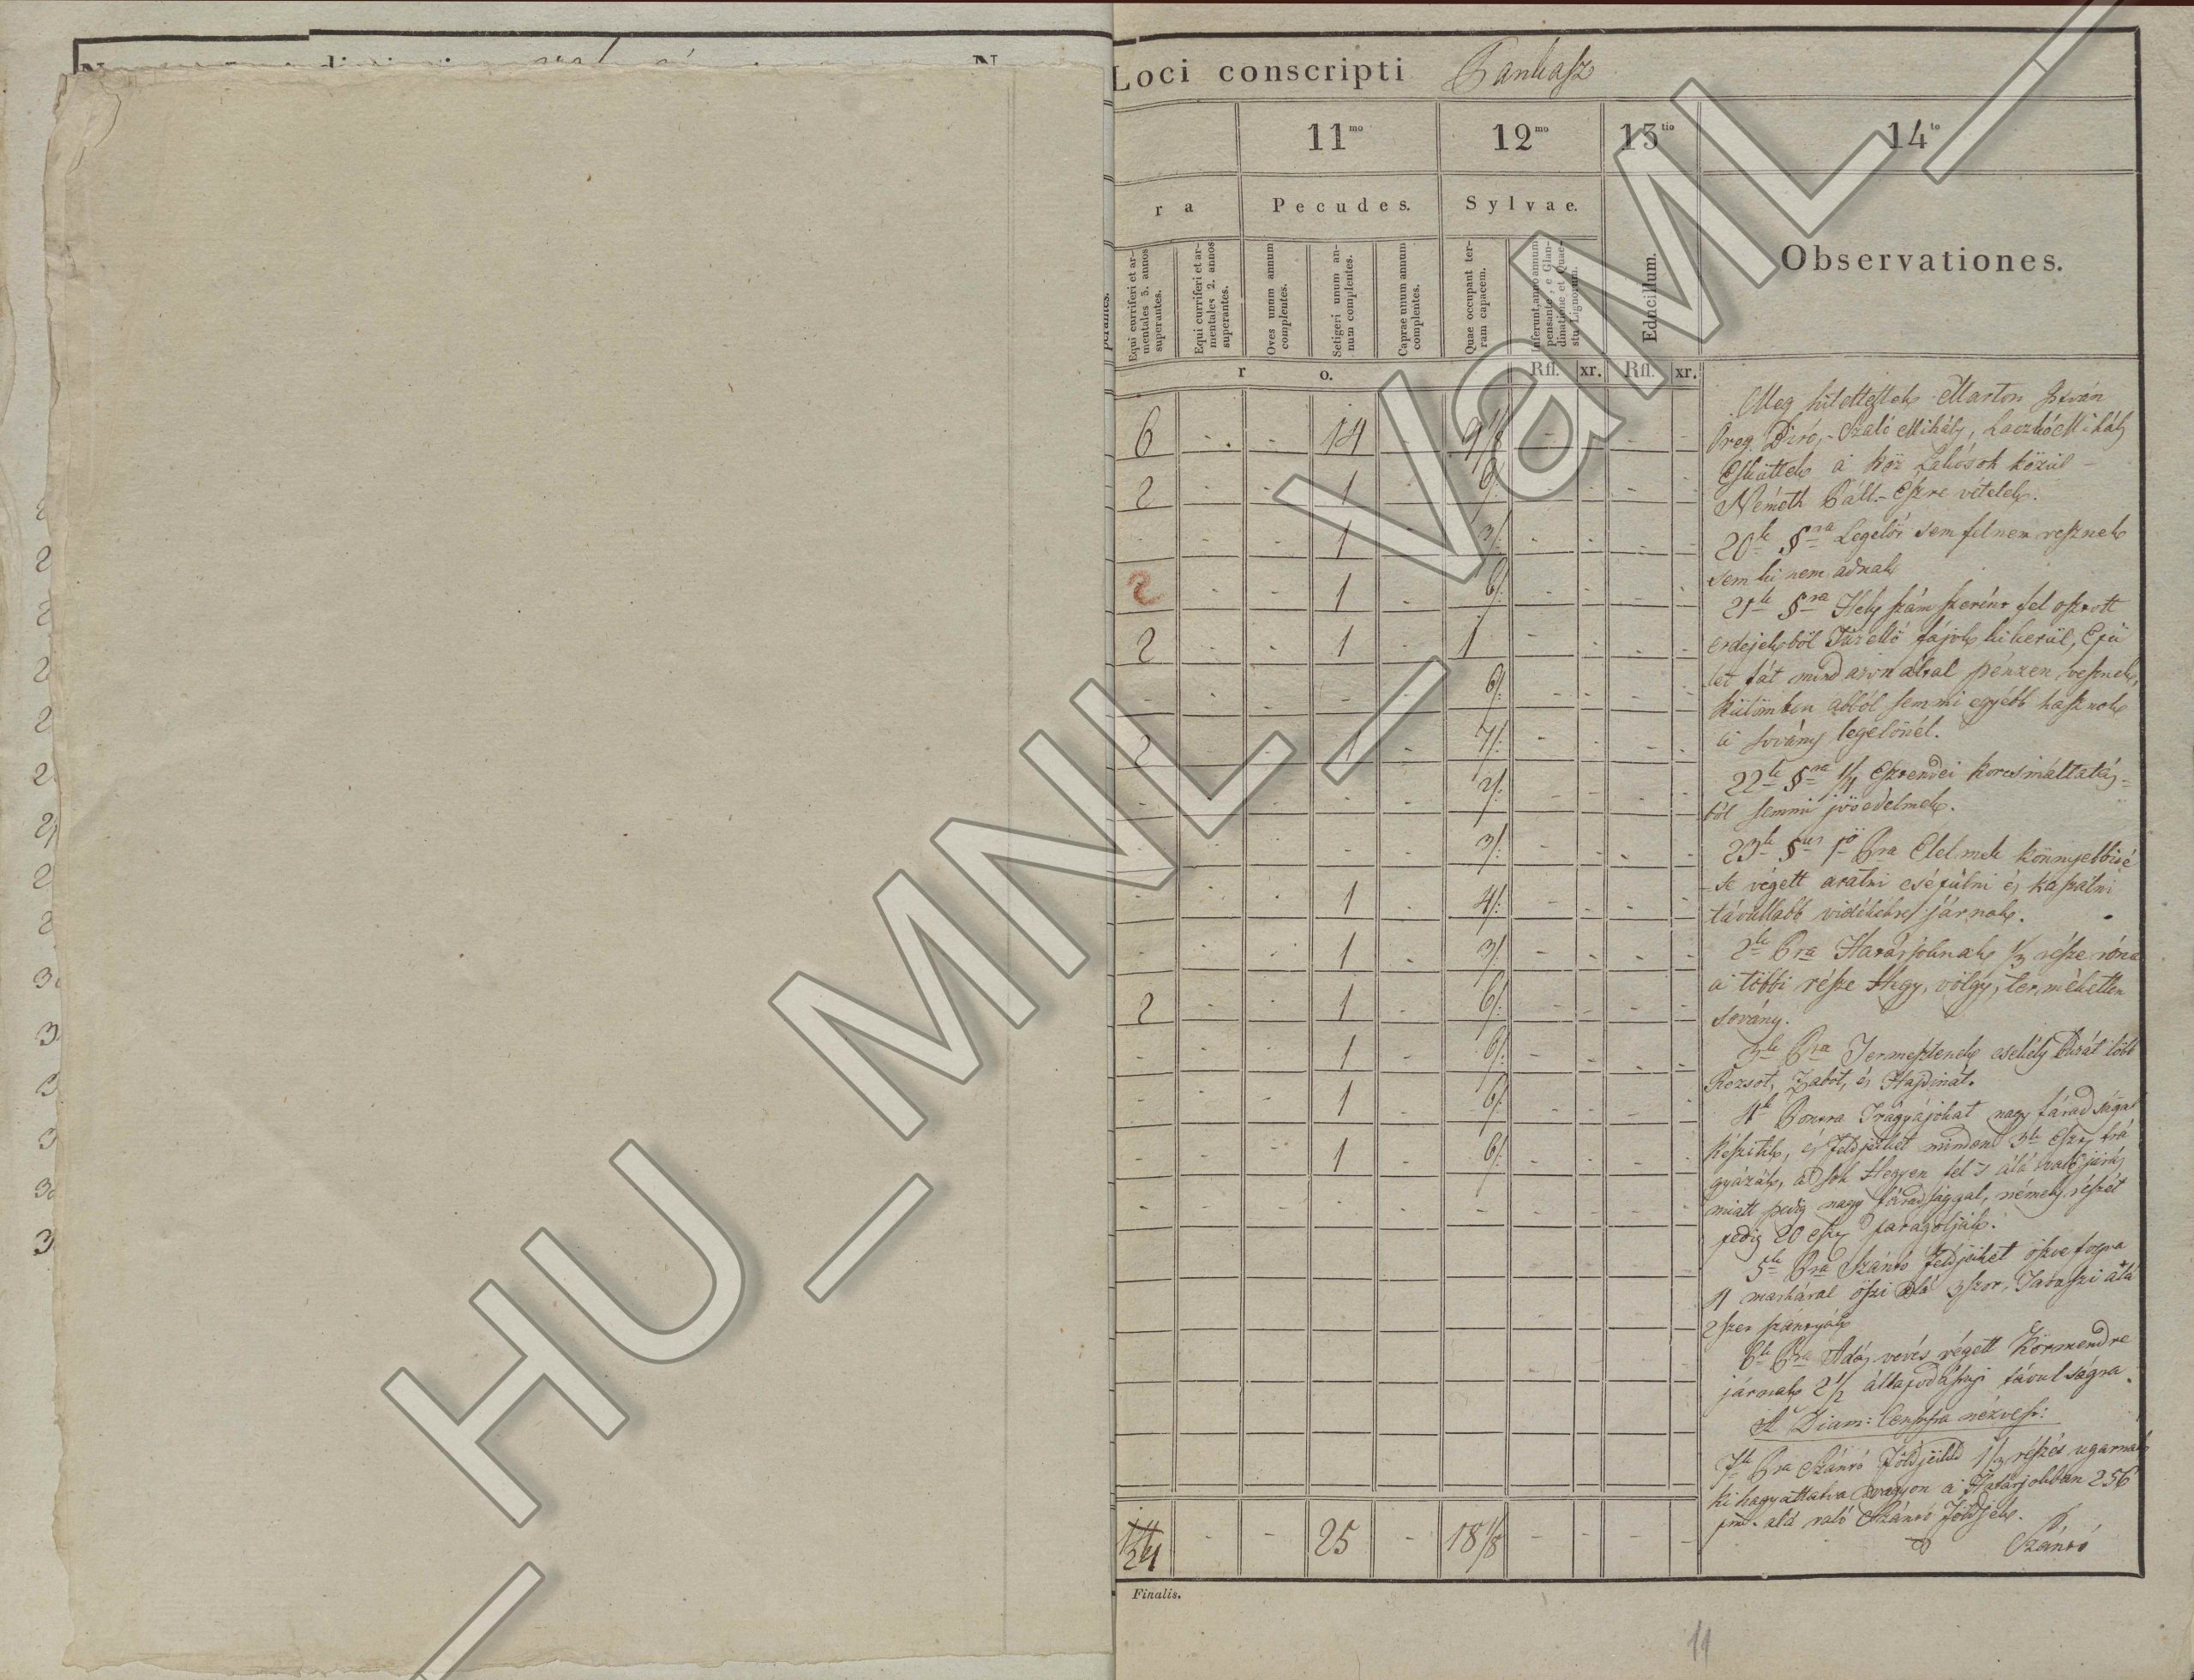 Loci conscripti Pankasz
11mo 12mo 13tio 14to
r a Pecudes. Sylvae. Edncillum. Observationes.
Equi curriferi et armentales 3. annos superantes.
Equi curriferi et armentales 2. annos superantes.
Oves unum annum complentes.
Setigeri unum annum complentes.
Caprae unum annum complentes.
Quae occupant terram capacem.
Inferunt, anno annum pensando, e Glandinatione et Quaestu Lignorum.
r o. Rfl. xr. Rfl. xr.
6 - - 14 - 9/8 - - - -
2 - - 1 - 6/: - - - -
- - - 1 - 3/: - - - -
2 - - 1 - 6/: - - - -
2 - - 1 - 1 - - - -
- - - - - 6/: - - - -
2 - - 1 - 7/: - - - -
- - - - - 2/: - - - -
- - - - - 3/: - - - -
- - - 1 - 4/: - - - -
- - - 1 - 3/: - - - -
2 - - 1 - 6/: - - - -
- - - 1 - 6/: - - - -
- - - 1 - 6/: - - - -
- - - 1 - 6/: - - - -
- - - - - - - - - -
14 24 - - 25 - 18 1/8 - - - -
Meg hitettettek Marton István
Öreg Biró, Szaló Mihály, Laczkó Mihály
Esküttek a Köz Lakósok közül -
Németh Páll. Észre vételek.
20ik §ra Legelőt sem fel nem vesznek
sem ki nem adnak
21ik §ra Hely szám szerént fel osztott
erdejekből Tüzellő fájok kikerül, Épü
let fát mindazonáltal pénzen vesznek,
külömben abból semmi egyébb hasznok
a sovány legelőnél.
22ik §ra 1/4 Esztendei Korcsmáltatás-
ból semmi jövedelmek.
23ik §us 1ő Pra Élelmek könnyebbisé
-te végett aratni csépülni és kapálni
távullabb vidékekre járnak.
2ik Pra Határjoknak 1/3 része róna
a többi része Hegy, völgy, terméketlen
sovány.
3ik Pra Termesztenek csekély Búzát több
Rozsot, Zabot, és Hajdinát.
4ik Pontra Trágyájokat nagy fáradsággal
készitik, és földjeiket minden 3ik Eszt. trá
gyázák, a sok Hegyen fel 's alá való járás
miatt pedig nagy fáradsággal, némely részét
pedig 20 Eszt. faragolják.
5ik Pra Szántó Földjeiket öszve fogva
4 marhával őszi alá 3szor, Tavaszi alá
2szer szántyák
6ik Pra Adás vevés végett Körmendre
járnak 2 1/2 állapodásnyi távulságra.
A Diam: Censusra nézvest:
7ik Pra Szántó Földjeikbül 1/3 részét ugarnak
ki hagyattatva vagyon a Határjokban 256
pm. alá való Szántó Földjek.
Szántó
Finalis.
2
2
2
2
2
2
2
2
3
3
3
3
3
3
11
HU_MNL_VaML_